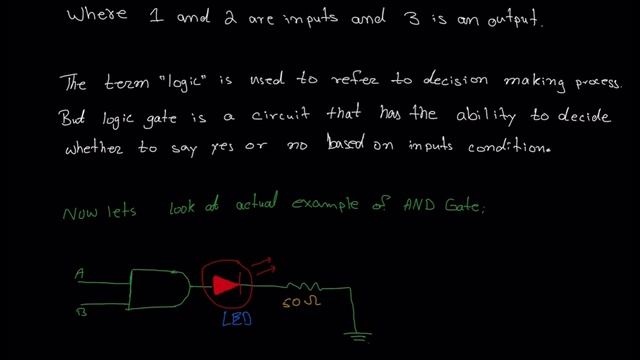 Where 1 and 2 are inputs and 3 is an output.
The term "logic" is used to refer to decision making process.
But logic gate is a circuit that has the ability to decide
whether to say yes or no based on inputs condition.
Now lets look at actual example of AND Gate;
A
B
LED
50 Ω